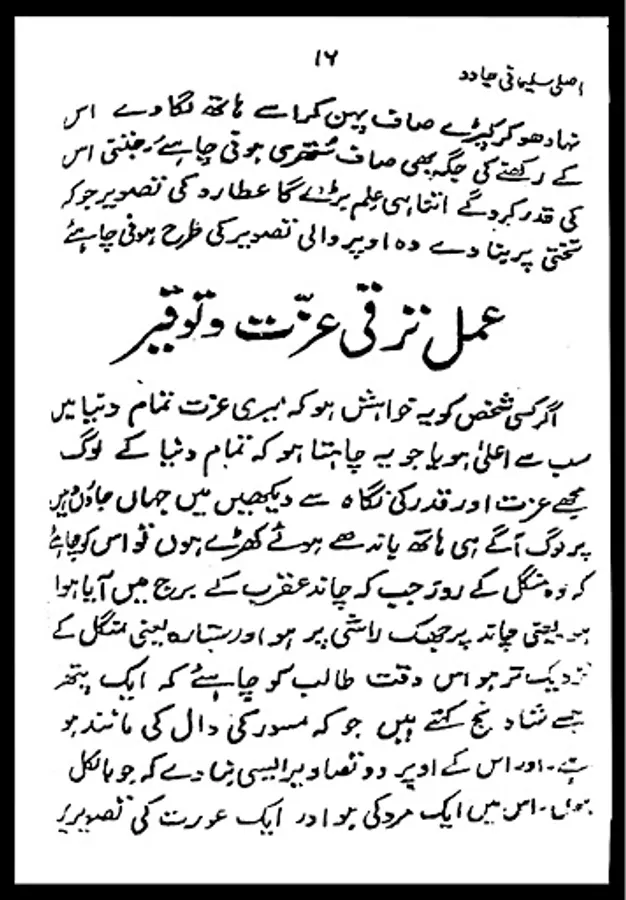 ۱۶
اصلی سلیمانی جادو
نہا دھو کر کپڑے صاف پہن کر اسے ہاتھ لگا دے اس
کے رکھنے کی جگہ بھی صاف ستھری ہونی چاہئے جتنی اس
کی قدر کرو گے اتنا ہی علم بڑھے گا عطارد کی تصویر جو کہ
تختی پر بنا دے وہ اوپر والی تصویر کی طرح ہونی چاہئے
عمل ترقی عزّت و توقیر
اگر کسی شخص کو یہ خواہش ہو کہ میری عزت تمام دنیا میں
سب سے اعلیٰ ہو یا جو یہ چاہتا ہو کہ تمام دنیا کے لوگ
مجھے عزت اور قدر کی نگاہ سے دیکھیں میں جہاں جاؤں وہیں
پر لوگ آگے ہی ہاتھ باندھے ہوئے کھڑے ہوں تو اس کو چاہئے
کہ وہ منگل کے روز جب کہ چاند عقرب کے برج میں آیا ہوا
ہو یعنی چاند پرچھک راشی پر ہو اور ستارہ یعنی منگل کے
نزدیک تر ہو اس وقت طالب کو چاہئے کہ ایک پتھر
جسے شاد نج کہتے ہیں جو کہ مسور کی دال کی مانند ہو
اور اس کے اوپر دو تصاویر ایسی بنا دے کہ جو بالکل
ہوں۔ اس میں ایک مرد کی ہو اور ایک عورت کی تصویر